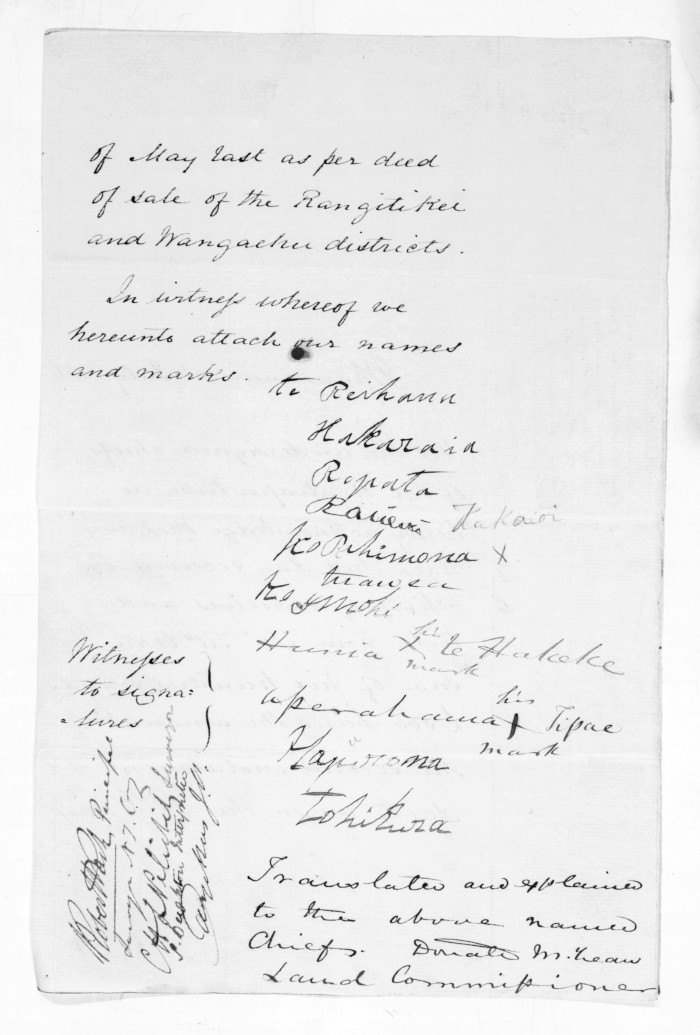 of May last as per deed
of sale of the Rangitikei
and Wangaehu districts.
In witness whereof we
hereunto attach our names
and marks.
te Reihana
Hakaraia
Ropata
Kakaioi
Ko Rihimona X
Ko Mohi
Hunia his X mark te Hakeke
Aperahama his X mark Tipae
Hapurona
Tohikura
Witnesses
to signa=
=tures
Robert Park Principal
Surveyor N.Z.C.
Surveyor
Interpreter
J.P.
Translated and explained
to the above named
Chiefs. Donald McLean
Land Commissioner